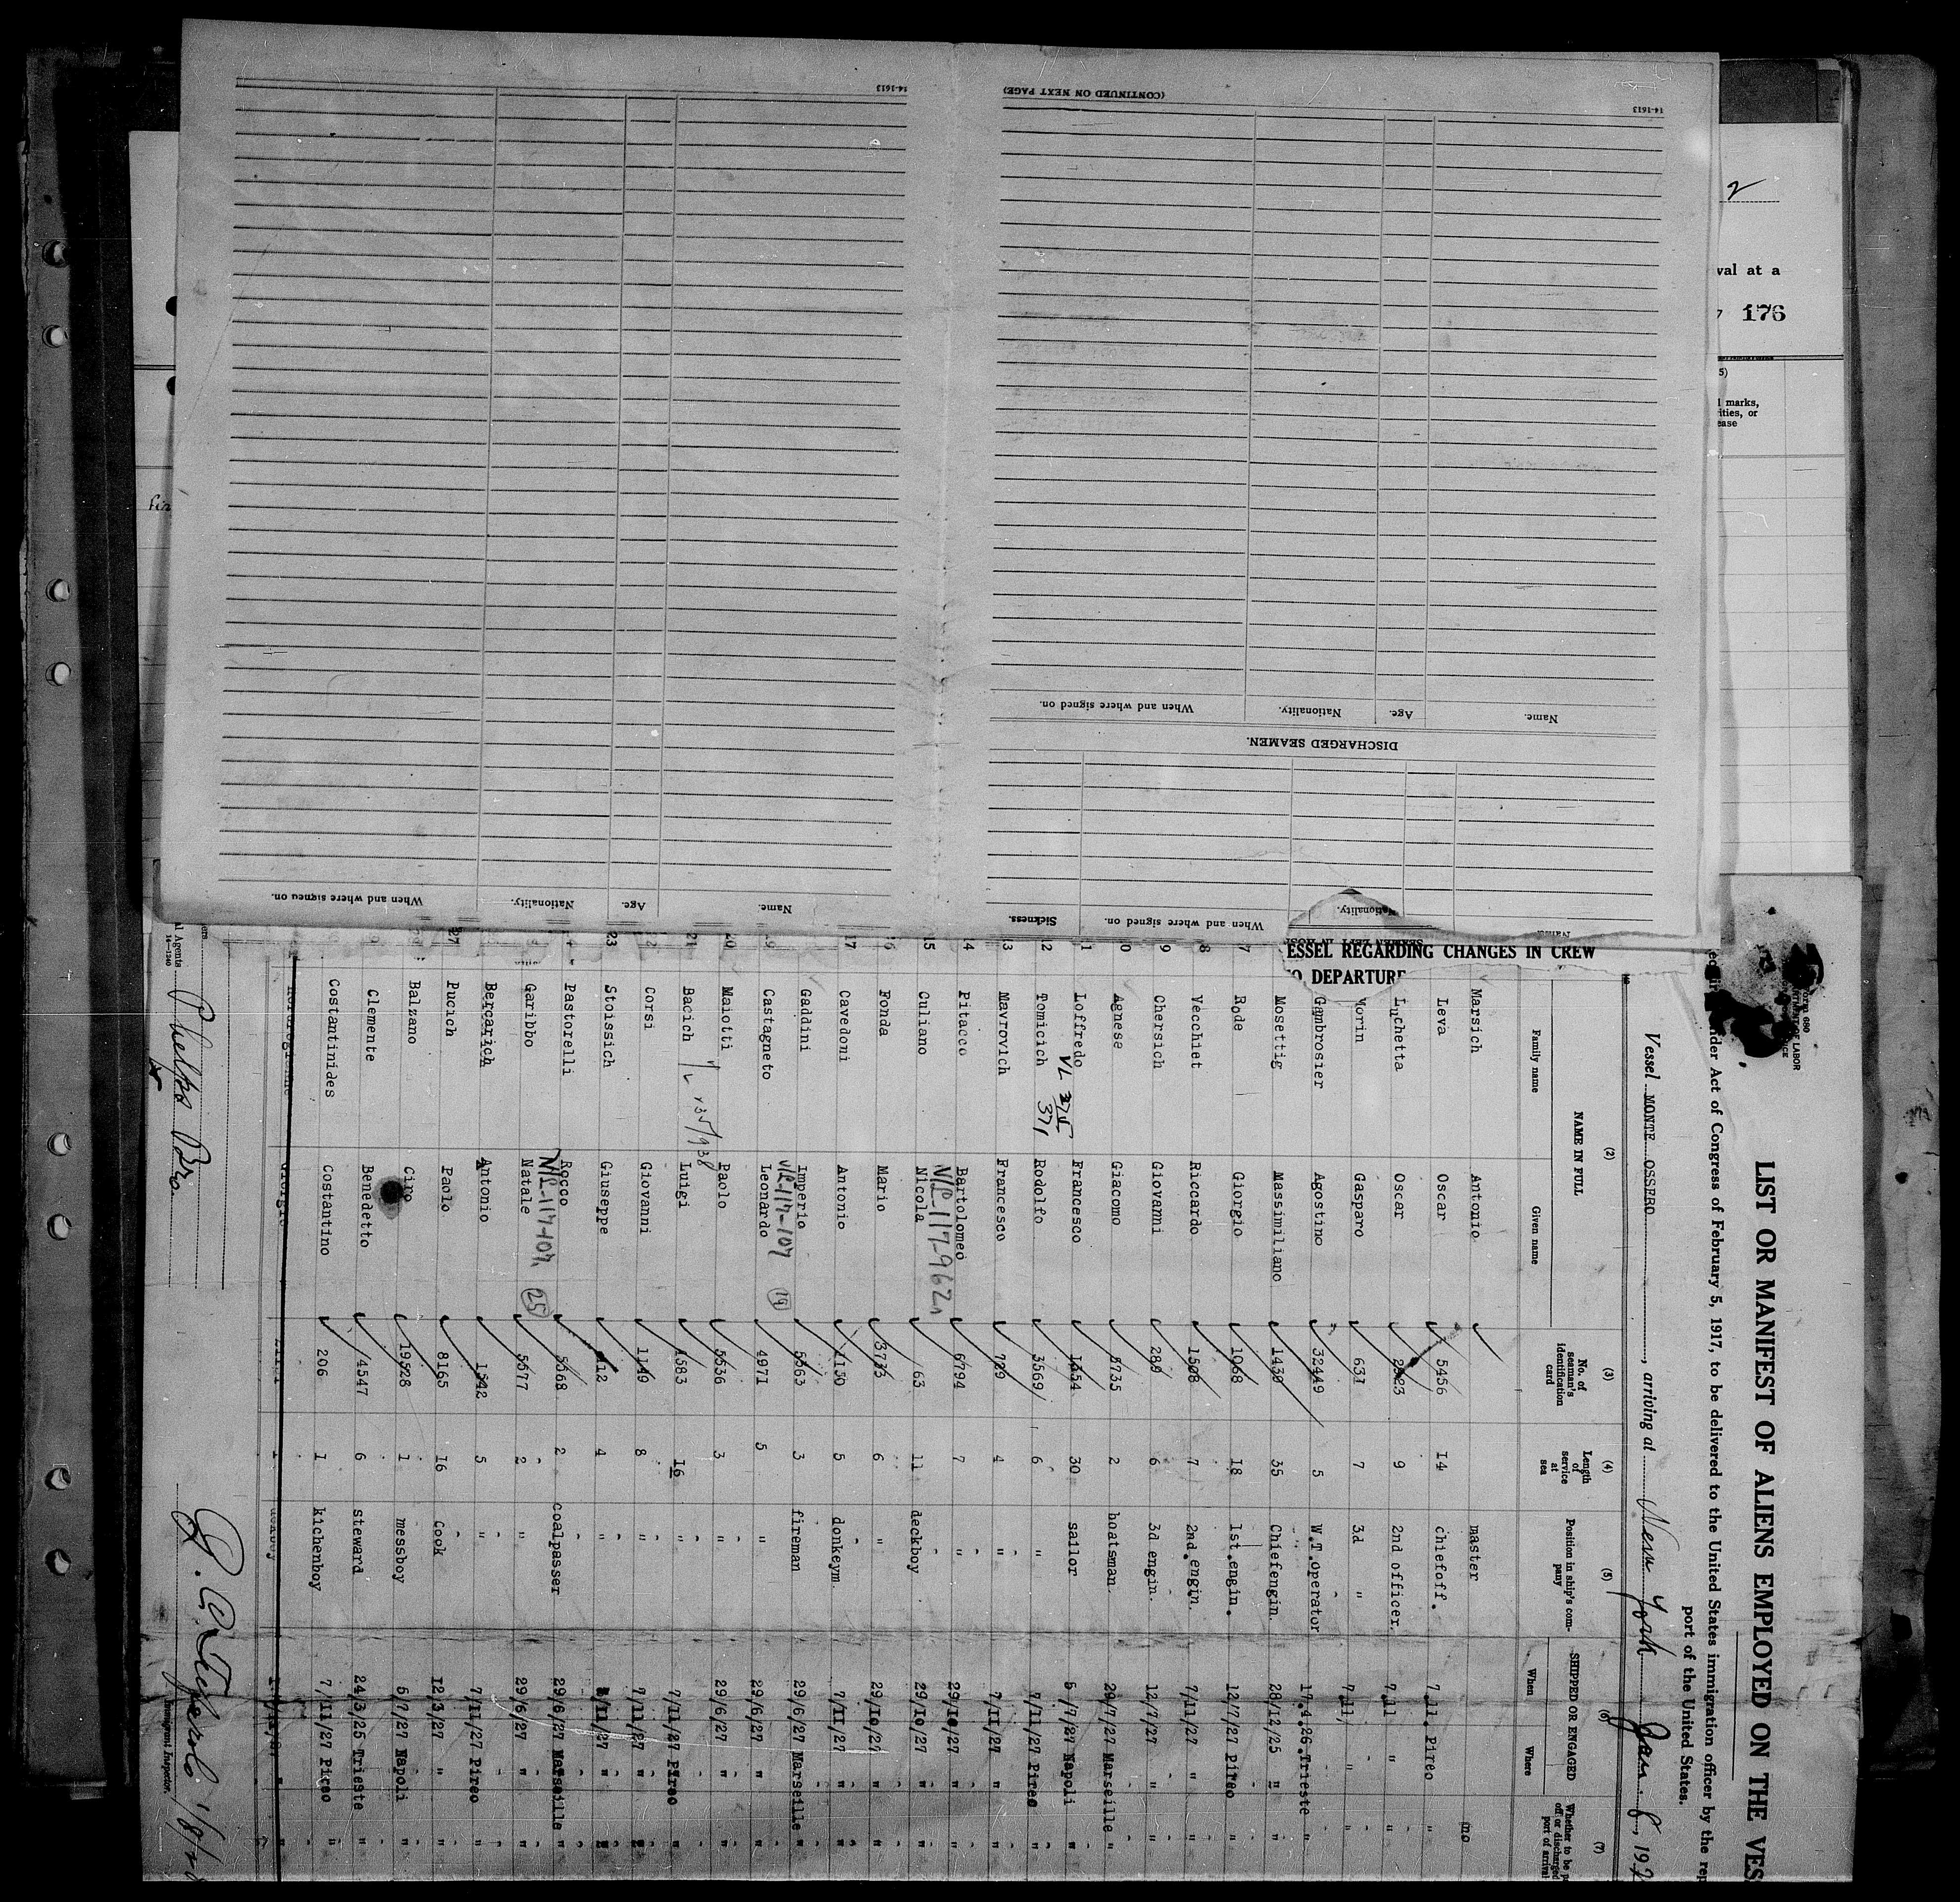 14-1613
(CONTINUED ON NEXT PAGE)
14-1613
When and where signed on. Nationality. Age. Name.
DISCHARGED SEAMEN.
Sickness. When and where signed on. Nationality.
When and where signed on. Nationality. Age. Name.
2
val at a
176
5)
marks,
rities, or
ease
ESSEL REGARDING CHANGES IN CREW
O DEPARTURE
LIST OR MANIFEST OF ALIENS EMPLOYED ON THE VES
nder Act of Congress of February 5, 1917, to be delivered to the United States immigration officer by the rep
port of the United States.
Vessel MONTE OSSERO, arriving at New York Jan. 8, 192
(2) (3) (4) (5) (6) (7)
NAME IN FULL
Family name Given name
No. of seaman's identification card
Length of service at sea
Position in ship's company
SHIPPED OR ENGAGED
When Where
Whether to be p
off or discharged
port of arrival
Marsich Antonio master no
Leva Oscar 5456 14 chiefoff. 7.11. Pireo "
Luchetta Oscar 2523 9 2nd officer. 7.11 " "
Morin Gasparo 631 7 3d " 7.11, " "
Gambrosier Agostino 32449 5 W.T.Operator 17.4.26.Trieste "
Mosettig Massimiliano 1430 35 Chiefengin. 28/12/25 " "
7 Rode Giorgio 1068 18 1st.engin. 12/7/27 Pireo "
8 Vecchiet Riccardo 1508 7 2nd.engin. 7/11/27 " "
9 Chersich Giovanni 289 6 3d engin. 12/7/27 " "
10 Agnese Giacomo 5735 2 boatsman. 29/7/27 Marseille "
11 Loffredo Francesco 1354 30 sailor 5/7/27 Napoli "
VL 375
371
12 Tomicich Rodolfo 3569 6 " 7/11/27 Pireo "
13 Mavrovich Francesco 729 4 " 7/11/27 " "
14 Pitacco Bartolomeo 6794 7 " 29/10/27 " "
V/L-117-962
15 Culiano Nicola 63 11 deckboy 29/10/27 " "
16 Fonda Mario 3733 6 " 29/10/27 " "
17 Cavedoni Antonio 1130 5 donkeym. 7/11/27 " "
Gaddini Imperio 5563 3 fireman 29/6/27 Marseille "
V/L-117-107 19
Castagneto Leonardo 4971 5 " 29/6/27 " "
20 Maiotti Paolo 5536 3 " 29/6/27 " "
21 Bacich Luigi 4583 16 " 7/11/27 Pireo "
Corsi Giovanni 1149 8 " 7/11/27 " "
23 Stoissich Giuseppe 412 4 " 7/11/27 " "
Pastorelli Rocco 5568 2 coalpasser 29/6/27 Marseille "
V/L-117-107 25
Garibbo Natale 5577 2 " 29/6/27 " "
Bercarich Antonio 1542 5 " 7/11/27 Pireo "
27 Pucich Paolo 8165 16 Cook 12/3/27 " "
Balzano Ciro 19528 1 messboy 5/7/27 Napoli "
Clemente Benedetto 4547 6 steward 24/3/25 Trieste "
Costantinides Costantino 206 1 kichenboy 7/11/27 Pireo "
l Agents
14-1240
Phelps Bro.
Immigrant Inspector.